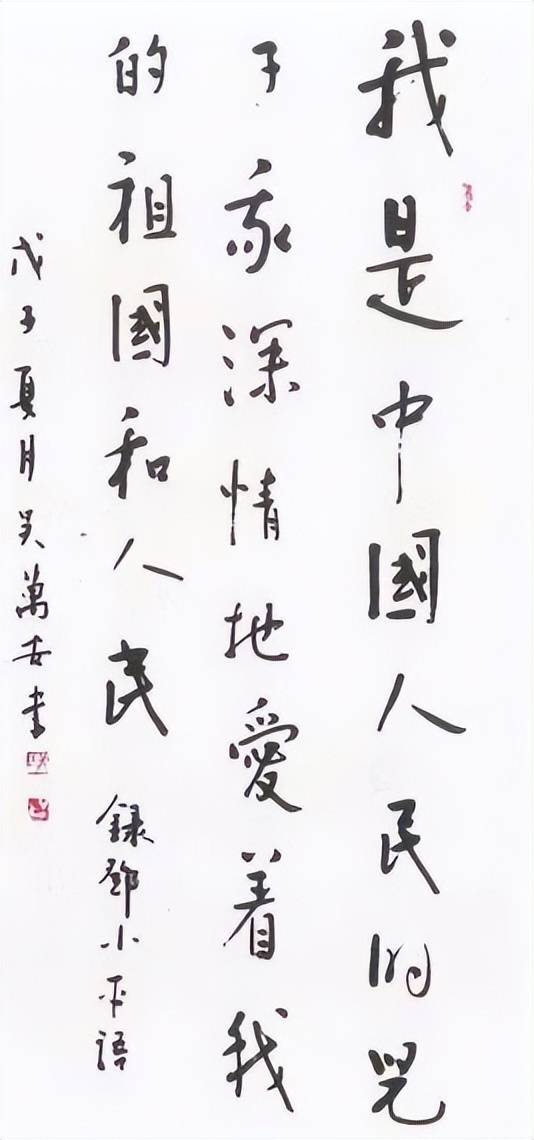 我是中國人民的兒
子我深情地愛着我
的祖國和人民 録鄧小平語
戊子夏月吴萬古書